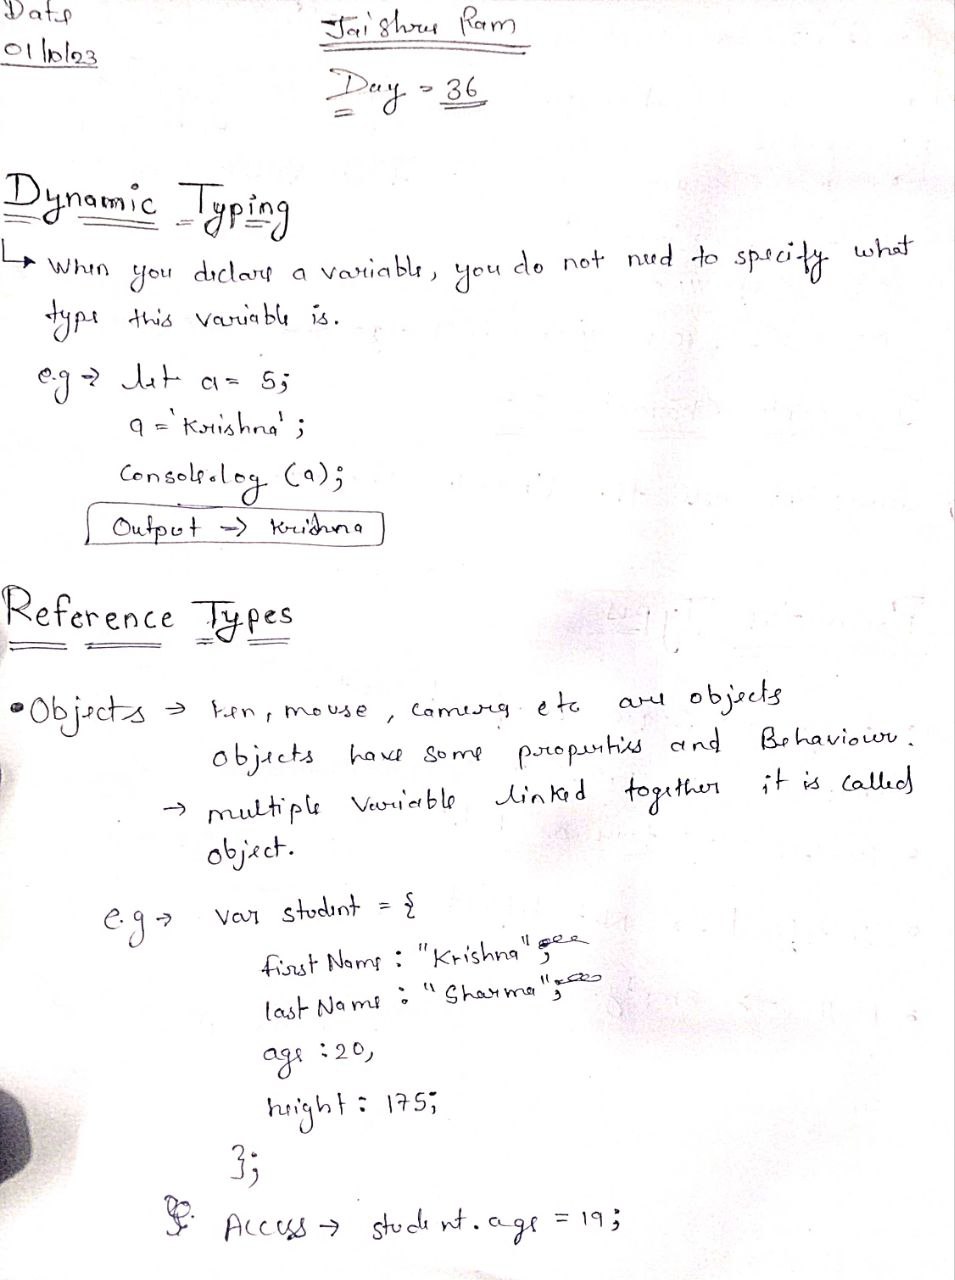 Date
01/10/23
Jai Shree Ram
Day = 36
Dynamic Typing
↳ When you declare a variable, you do not need to specify what
type this variable is.
e.g → let a = 5;
a = 'Krishna';
Console.log (a);
Output → Krishna
Reference Types
• Objects → Pen, mouse, camera etc are objects
objects have some properties and Behaviour.
→ multiple Variable linked together it is called
object.
e.g → var student = {
first Name : "Krishna";
last Name : "Sharma";
age : 20,
height : 175;
};
Access → student.age = 19;